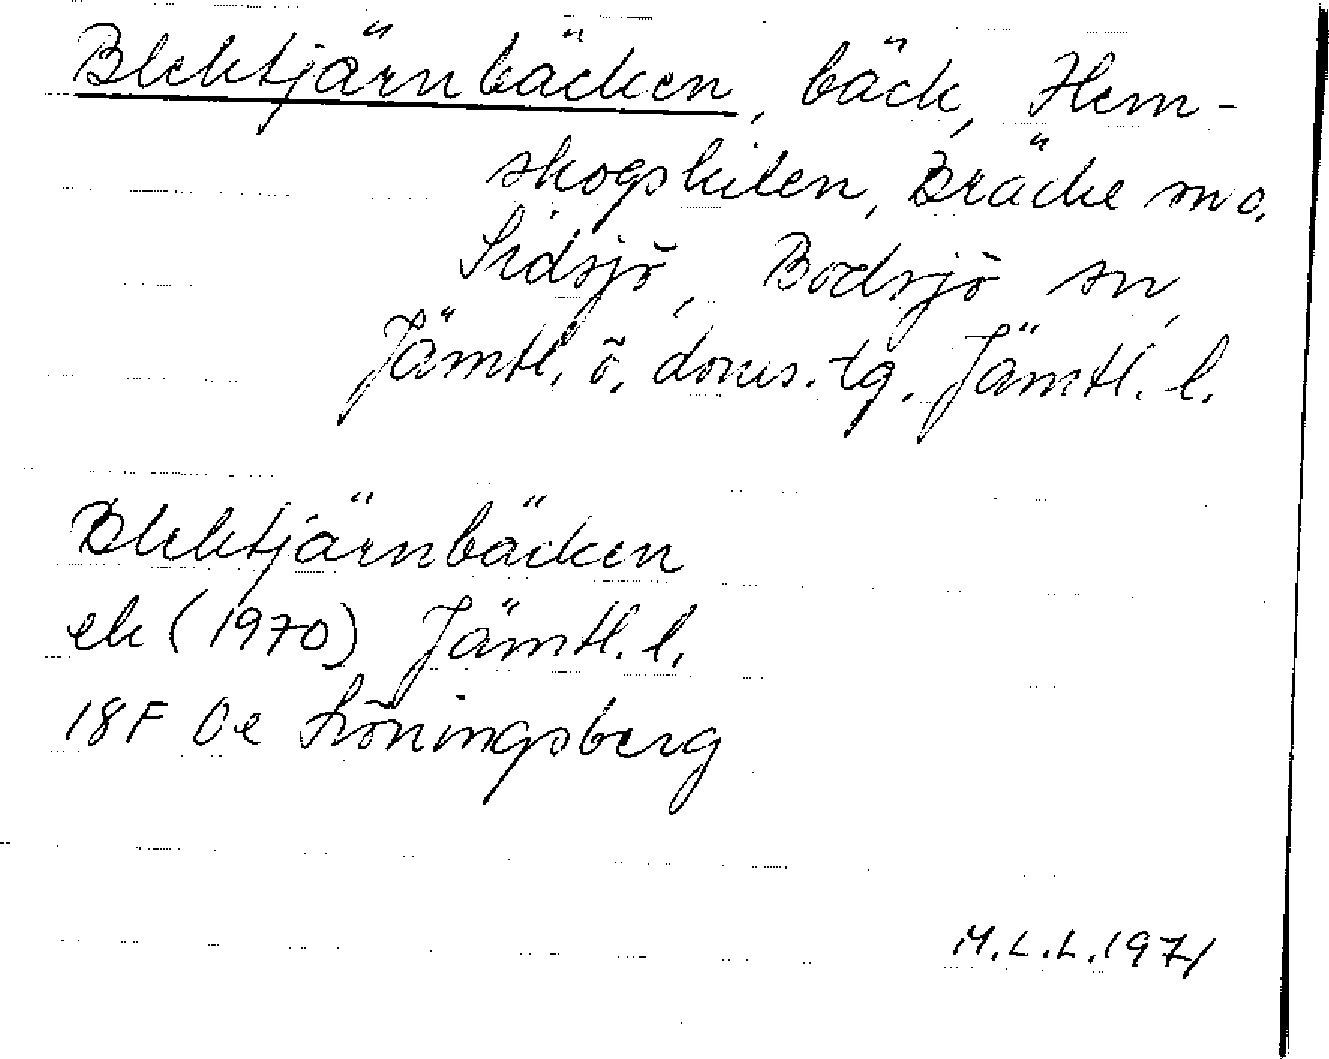 Blektjärnbäcken, bäck, Hem-
skogskilen, Bräcke sn o.
Sidsjö, Bodsjö sn,
Jämtl. ö. doms. tg. Jämtl. l.
Blektjärnbäcken
ek (1970) Jämtl. l.
18F 0e Löningsberg
M.L.L. 1971